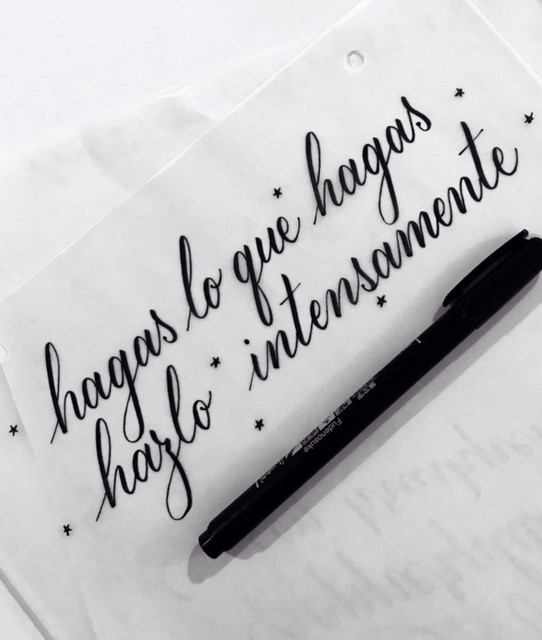 hagas lo que hagas
hazlo intensamente
Fudenosuke